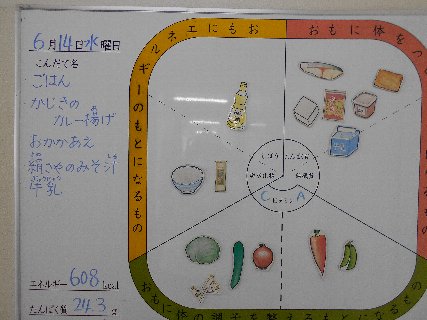 6月14日水曜日
こんだて名
ごはん
かじきの
カレー揚げ
おかかあえ
絹さやのみそ汁
牛乳
エネルギー 608 kcal
たんぱく質 24.3 g
おもにエネルギーのもとになるもの
おもに体をつ
おもに体の調子を整えるもとになるもの
しぼう
たんぱく質
炭水化物
無機質
C
ビタミン
A